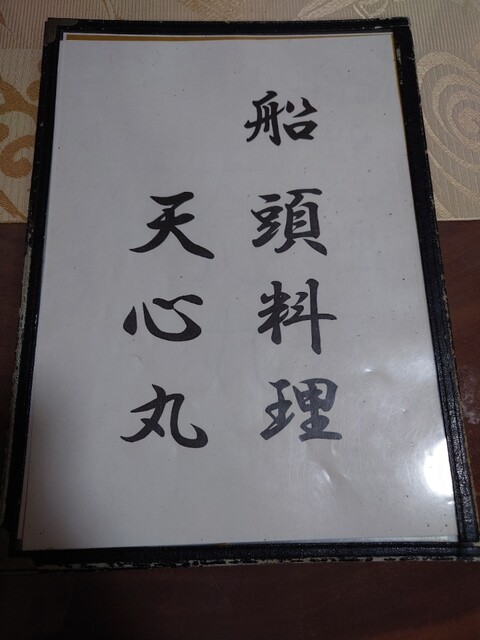 船頭料理
天心丸